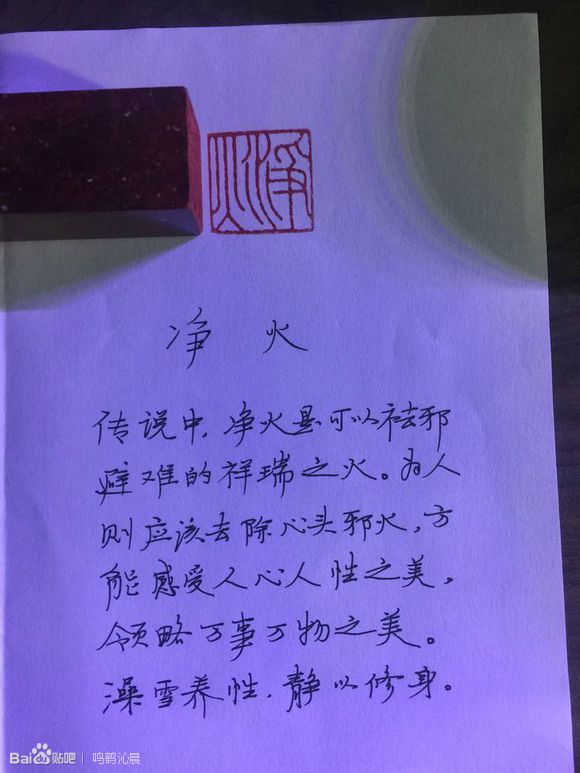 净火
净火
传说中,净火是可以祛邪
避难的祥瑞之火。为人
则应该去除心头邪火,方
能感受人心人性之美,
领略万事万物之美。
澡雪养性,静以修身。
Baidu贴吧 | 鸣鹤沁晨